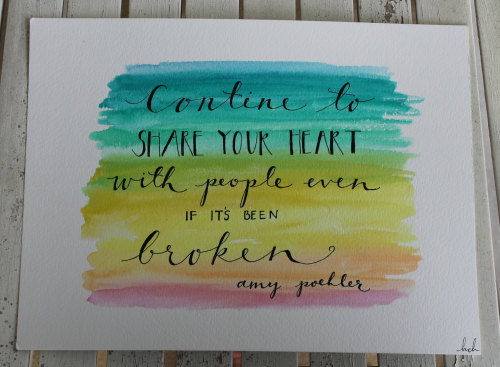 Contine to
SHARE YOUR HEART
with people even
IF IT'S BEEN
broken
amy poehler